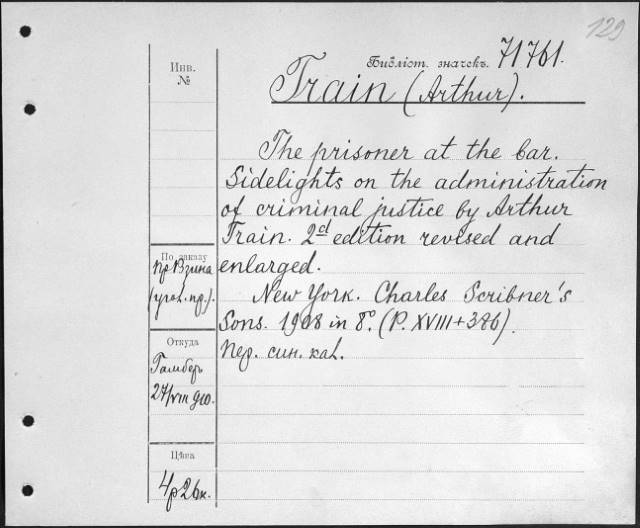 129
Библіот. значекъ. 71761.
Инв.
№
Train (Arthur).
The prisoner at the bar.
Sidelights on the administration
of criminal justice by Arthur
Train. 2d edition revised and
enlarged.
New York. Charles Scribner's
Sons. 1908 in 8°. (P. XVIII+346).
Пер. син. кал.
По заказу
пр Взина
(угол. пр.).
Откуда
Гамберъ
27/VIII 910.
Цѣна
4р 26к.